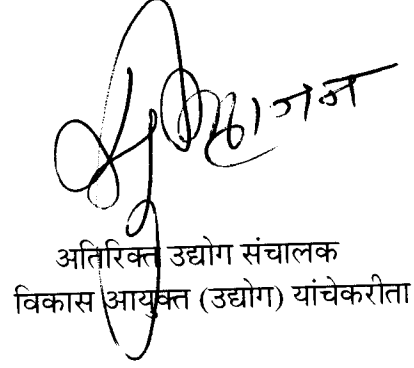 अतिरिक्त उद्योग संचालक
विकास आयुक्त (उद्योग) यांचेकरीता